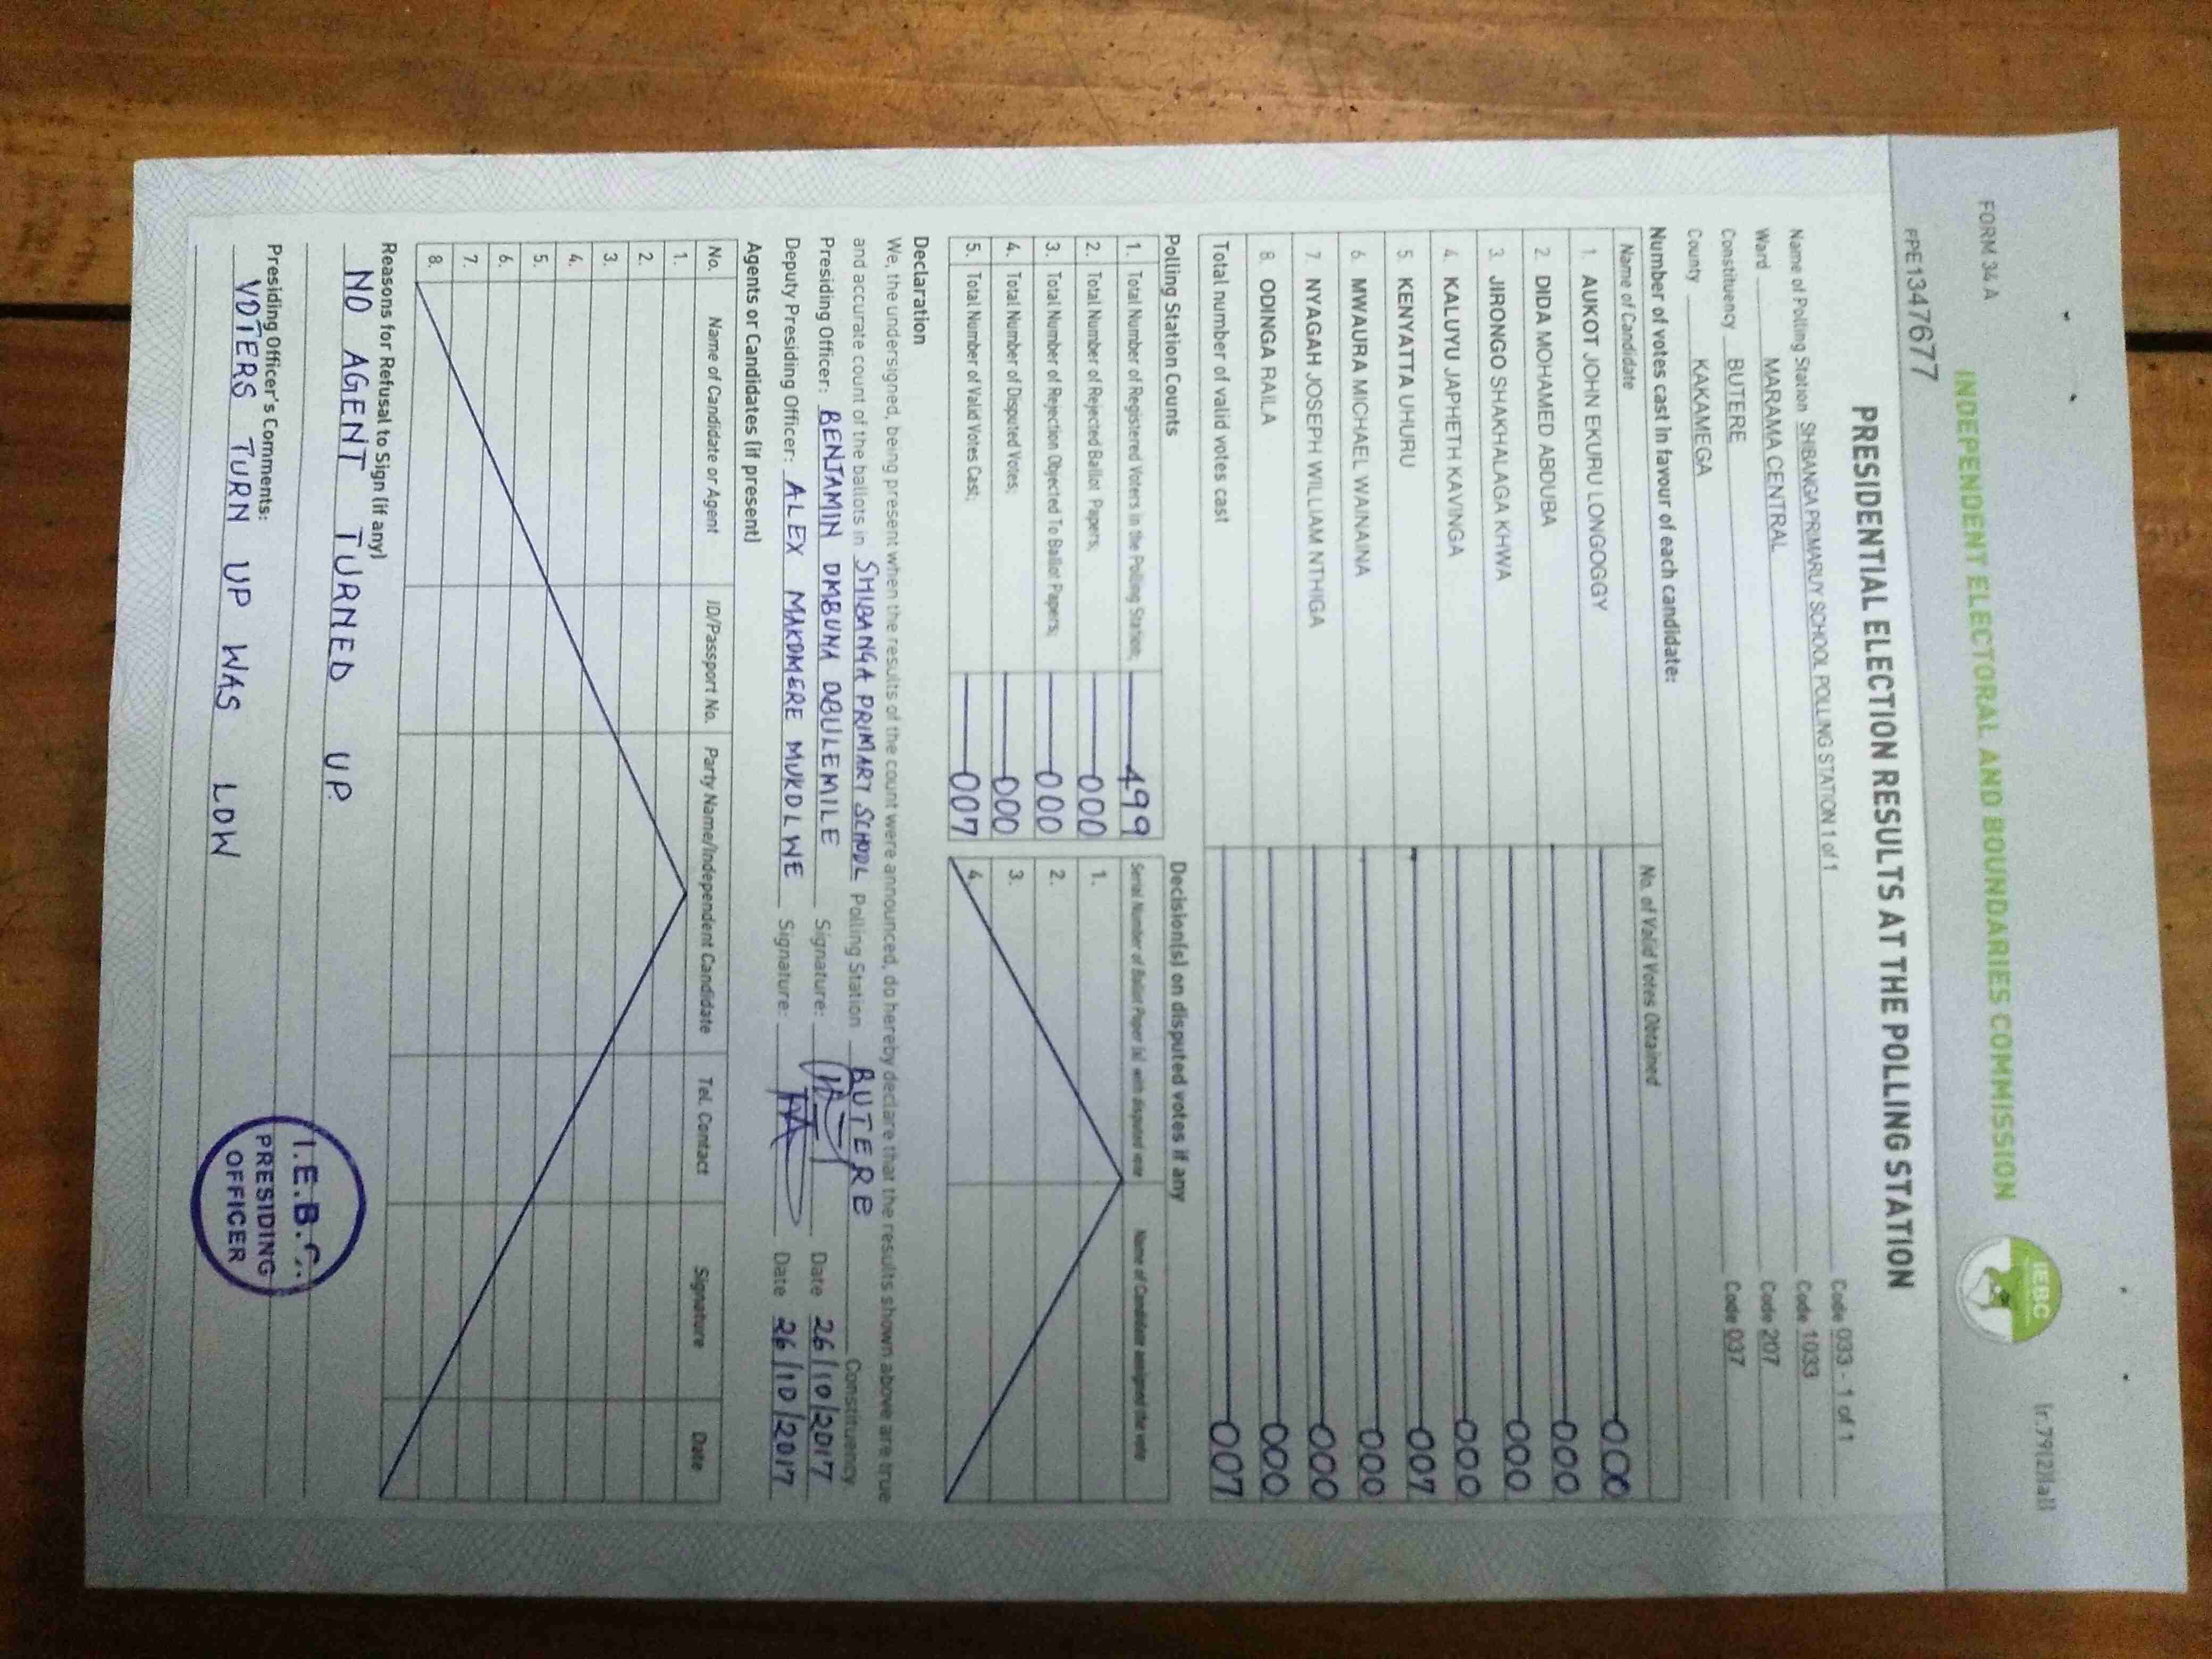 FORM 34 A
INDEPENDENT ELECTORAL AND BOUNDARIES COMMISSION
IEBC
(r.79(2)(a))
PPE1347677
PRESIDENTIAL ELECTION RESULTS AT THE POLLING STATION
Name of Polling Station SHIBANGA PRIMARUY SCHOOL POLLING STATION 1 of 1 Code 033 - 1 of 1
Ward MARAMA CENTRAL Code 1033
Constituency BUTERE Code 207
County KAKAMEGA Code 037
Number of votes cast in favour of each candidate:
Name of Candidate No. of Valid Votes Obtained
1. AUKOT JOHN EKURU LONGOGGY 000
2. DIDA MOHAMED ABDUBA 000
3. JIRONGO SHAKHALAGA KHWA 000
4. KALUYU JAPHETH KAVINGA 000
5. KENYATTA UHURU 007
6. MWAURA MICHAEL WAINAINA 000
7. NYAGAH JOSEPH WILLIAM NTHIGA 000
8. ODINGA RAILA 000
Total number of valid votes cast 007
Polling Station Counts
1. Total Number of Registered Voters in the Polling Station; 499
2. Total Number of Rejected Ballot Papers; 000
3. Total Number of Rejection Objected To Ballot Papers; 000
4. Total Number of Disputed Votes; 000
5. Total Number of Valid Votes Cast; 007
Decision(s) on disputed votes if any
Serial Number of Ballot Paper (s) with disputed vote Name of Candidate assigned the vote
1.
2.
3.
4.
Declaration
We, the undersigned, being present when the results of the count were announced, do hereby declare that the results shown above are true
and accurate count of the ballots in SHIBANGA PRIMARY SCHOOL Polling Station BUTERE Constituency
Presiding Officer: BENJAMIN OMBUNA OBULEMILE Signature: Date 26/10/2017
Deputy Presiding Officer: ALEX MAKOMERE MUKOLWE Signature: Date 26/10/2017
Agents or Candidates (if present)
No. Name of Candidate or Agent ID/Passport No. Party Name/Independent Candidate Tel. Contact Signature Date
1.
2.
3.
4.
5.
6.
7.
8.
Reasons for Refusal to Sign (if any)
NO AGENT TURNED UP.
Presiding Officer's Comments:
VOTERS TURN UP WAS LOW
I.E.B.C.
PRESIDING
OFFICER